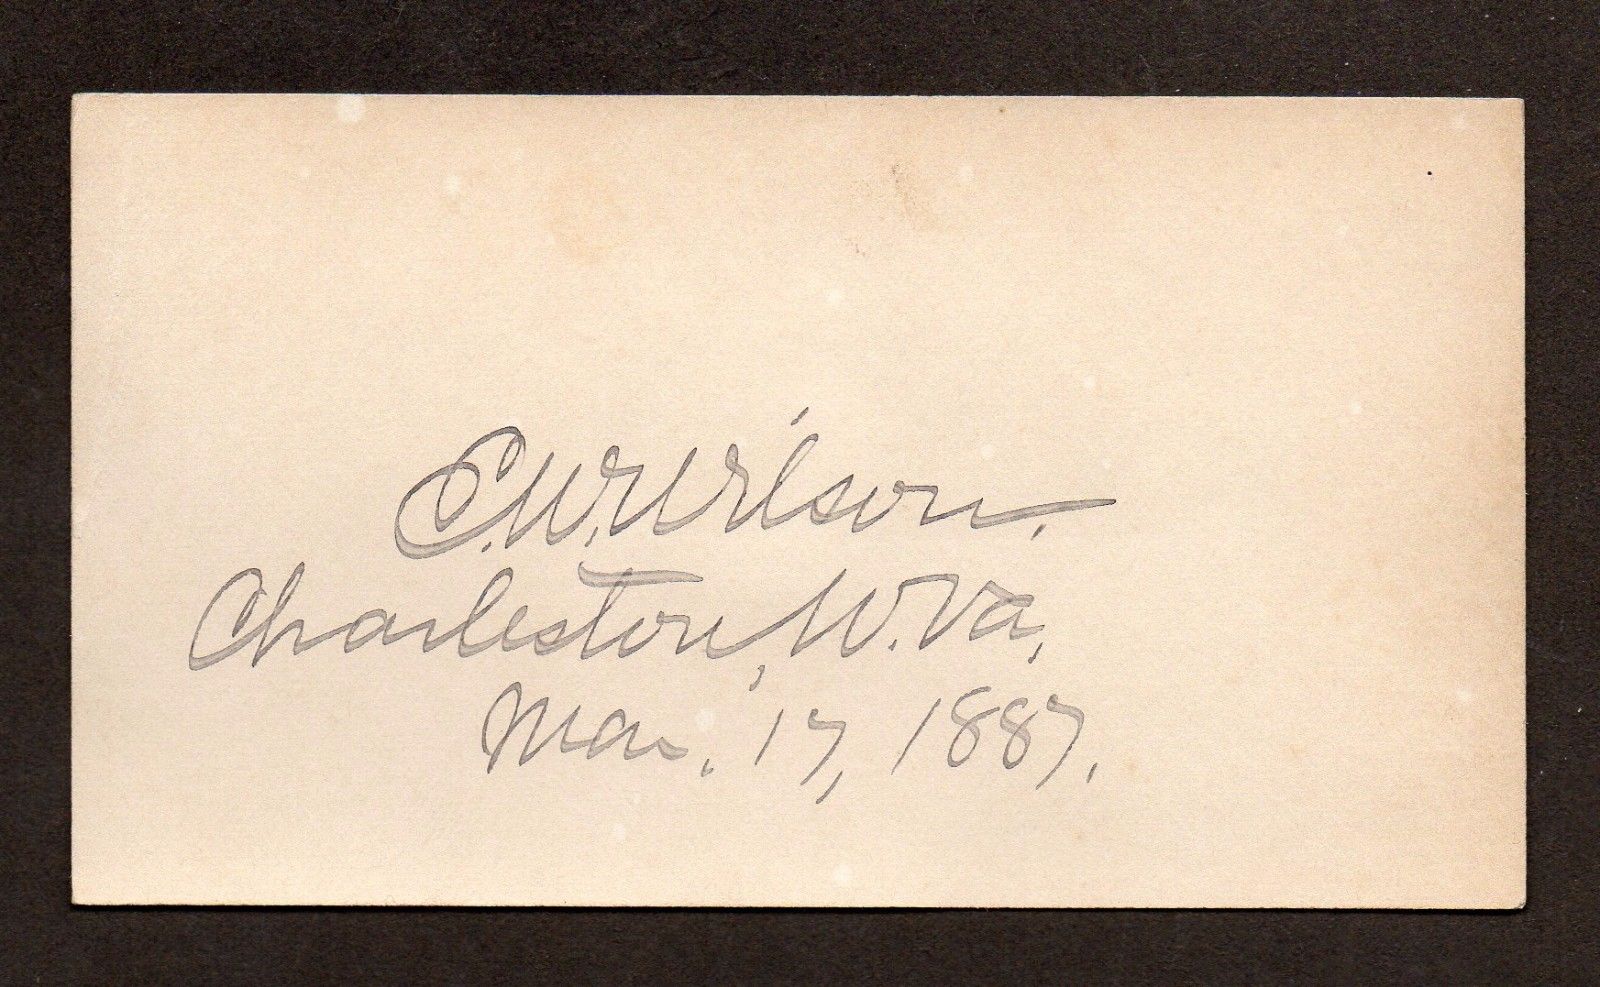 E.W. Wilson.
Charleston, W. Va,
Mar. 17, 1887.